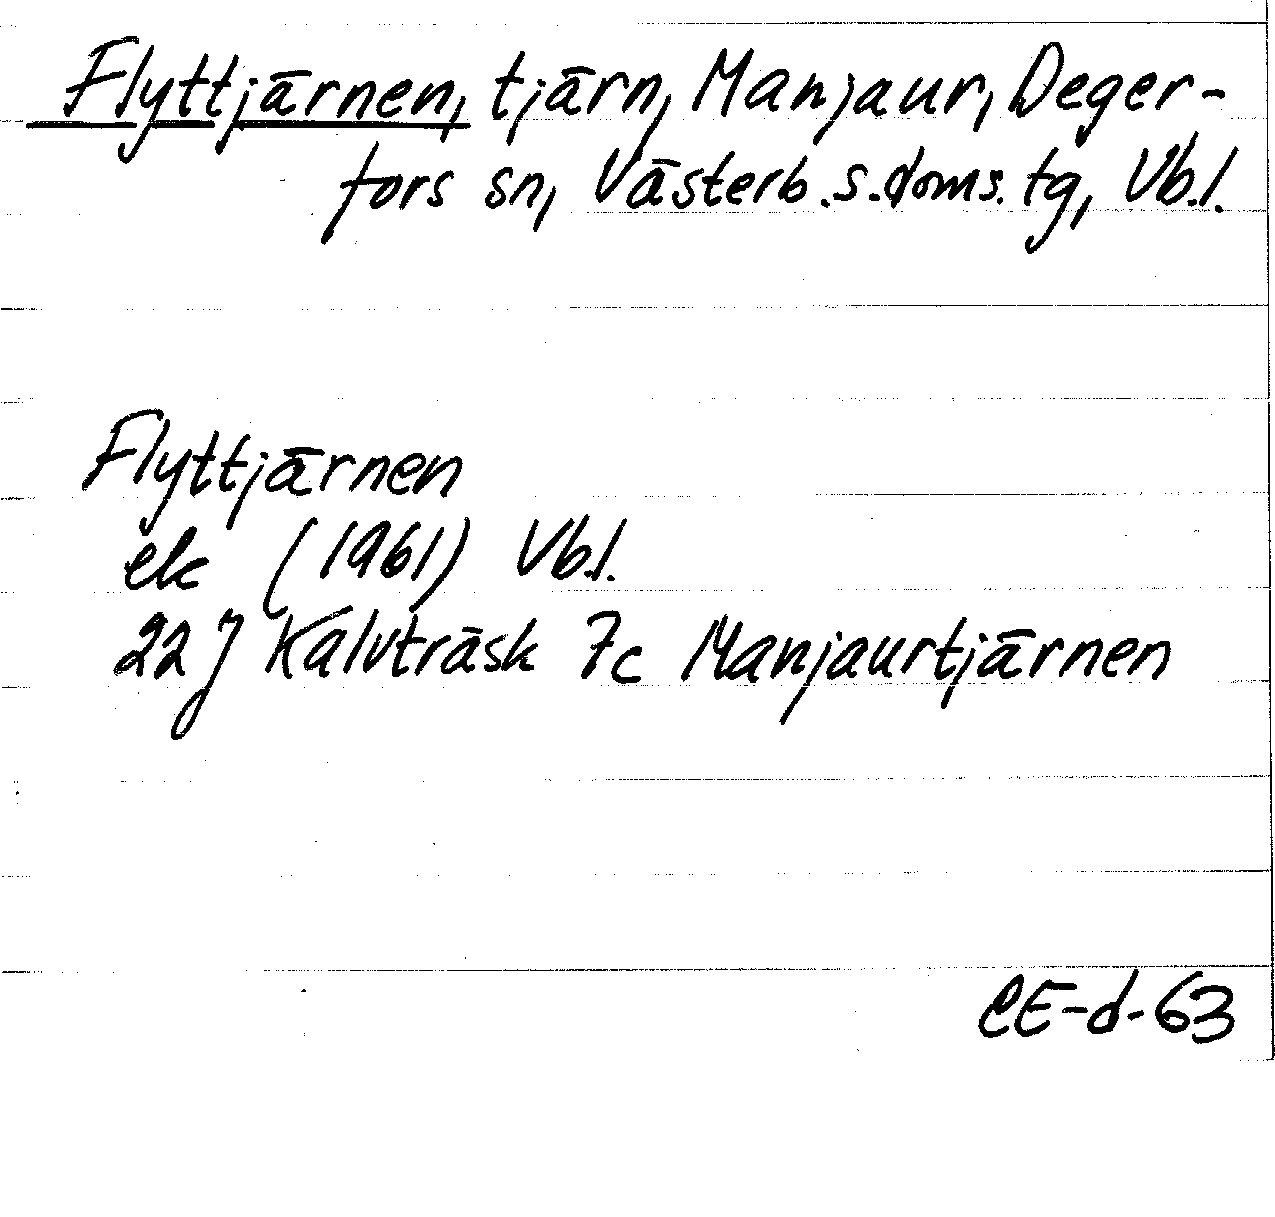 Flyttjärnen, tjärn, Manjaur, Deger-
fors sn, Västerb.s.doms.tg, Vb.l.
Flyttjärnen
ek (1961) Vb.l.
22 J Kalvträsk 7c Manjaurtjärnen
CE-d-63